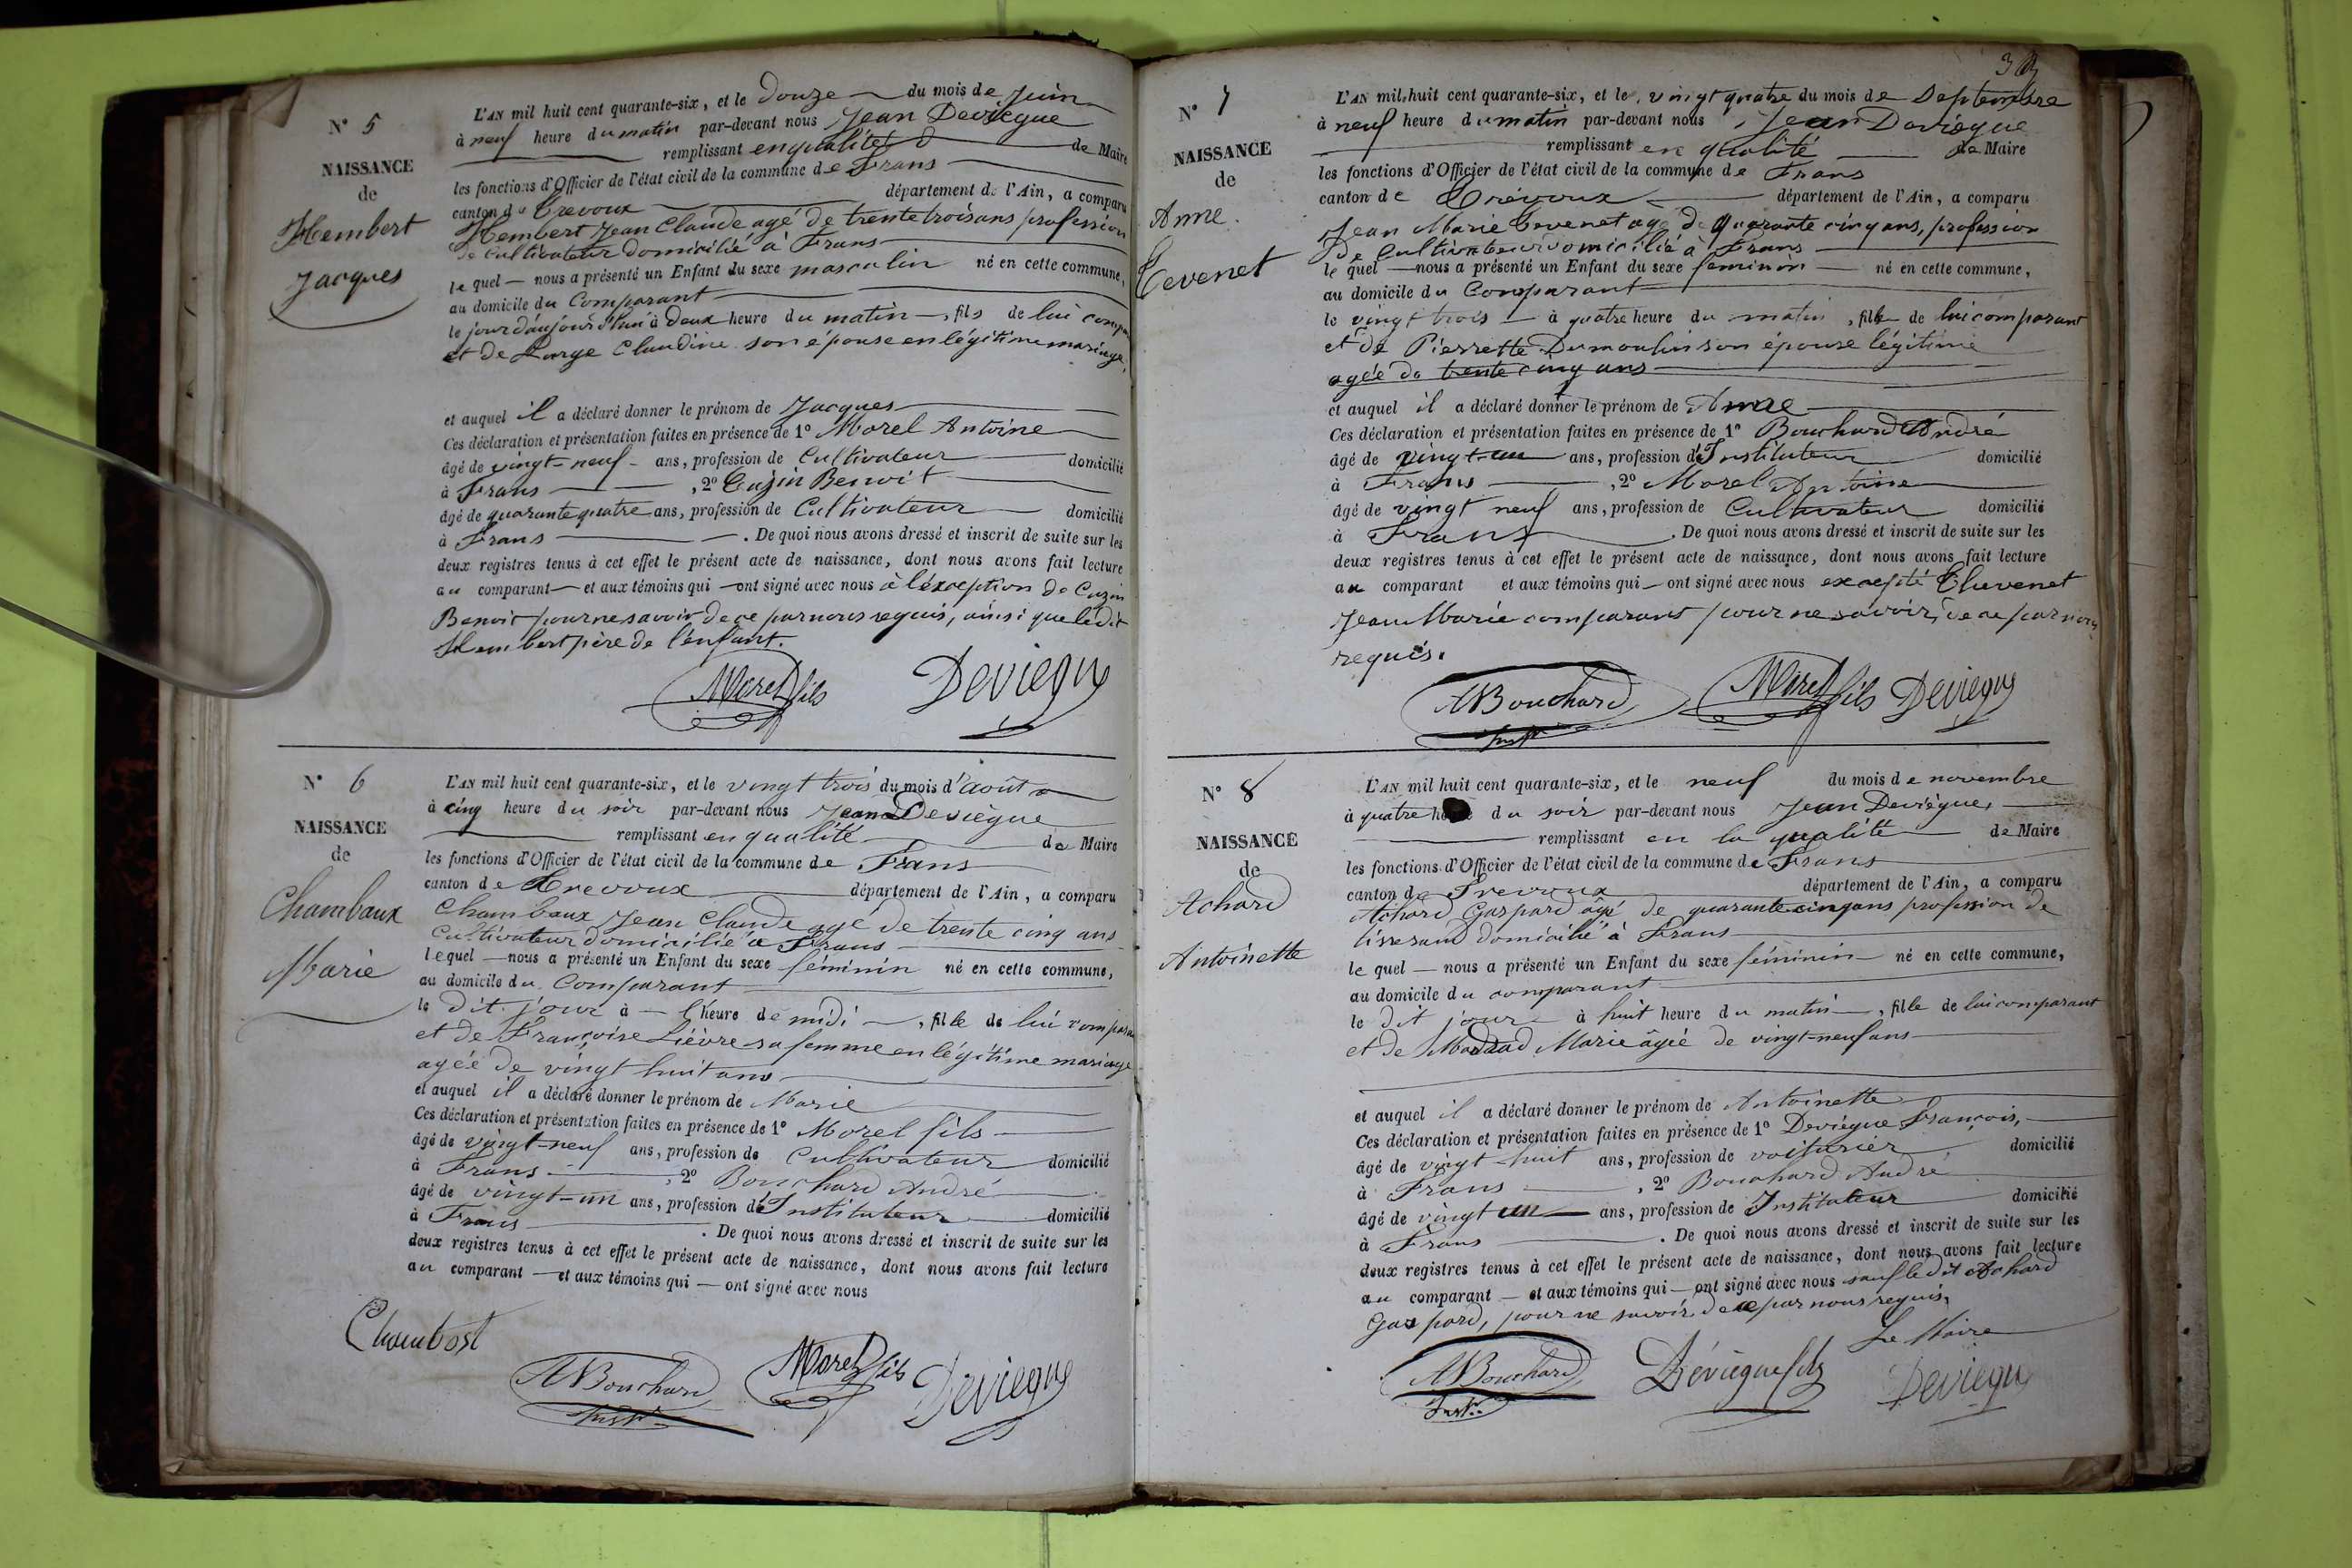 N° 5
NAISSANCE
de
Hembert
Jacques
L'AN mil huit cent quarante-six, et le douze du mois de Juin
à neuf heure du matin par-devant nous Jean Deviegue
remplissant en qualité de Maire
les fonctions d'Officier de l'état civil de la commune de Frans
canton de Trevoux département de l'Ain, a comparu
Hembert Jean Claude agé de trente trois ans profession
de Cultivateur domicilié à Frans
le quel — nous a présenté un Enfant du sexe masculin né en cette commune,
au domicile du Comparant
le jour d'aujourd'hui à deux heure du matin —, fils de lui compa
et de Large Claudine son épouse en légitime mariage,
et auquel il a déclaré donner le prénom de Jacques
Ces déclaration et présentation faites en présence de 1° Morel Antoine
âgé de vingt-neuf ans, profession de Cultivateur domicilié
à Frans , 2° Cuzin Benoit
âgé de quarante quatre ans, profession de Cultivateur domicilié
à Frans —. De quoi nous avons dressé et inscrit de suite sur les
deux registres tenus à cet effet le présent acte de naissance, dont nous avons fait lecture
au comparant — et aux témoins qui — ont signé avec nous à l'éxception de Cuzin
Benoit pour ne savoir de ce par nous requis, ainsi que le dit
Hembert père de l'enfant.
Morel fils Deviegue
N° 6
NAISSANCE
de
Chambaux
Marie
L'AN mil huit cent quarante-six, et le vingt trois du mois d'août
à cinq heure du soir par-devant nous Jean Deviègue
remplissant en qualité de Maire
les fonctions d'Officier de l'état civil de la commune de Frans
canton de Trevoux département de l'Ain, a comparu
Chambaux Jean Claude agé de trente cinq ans
Cultivateur domicilié à Frans
le quel — nous a présenté un Enfant du sexe féminin né en cette commune,
au domicile du Comparant
le dit jour à — l'heure de midi —, fille de lui compara
et de Françoise Lièvre sa femme en légitime mariage
agée de vingt huit ans
et auquel il a déclaré donner le prénom de Marie
Ces déclaration et présentation faites en présence de 1° Morel fils
âgé de vingt-neuf ans, profession de Cultivateur domicilié
à Frans , 2° Bouchard André
âgé de vingt-un ans, profession d'Instituteur domicilié
à Frans . De quoi nous avons dressé et inscrit de suite sur les
deux registres tenus à cet effet le présent acte de naissance, dont nous avons fait lecture
au comparant — et aux témoins qui — ont signé avec nous
Chambost
A Bouchard Morel fils Deviegue
Instr
N° 7
NAISSANCE
de
Anne
Tevenet
L'AN mil huit cent quarante-six, et le vingt quatre du mois de Septembre
à neuf heure du matin par-devant nous Jean Deviegue
remplissant en qualité de Maire
les fonctions d'Officier de l'état civil de la commune de Frans
canton de Trévoux département de l'Ain, a comparu
Jean Marie Tevenet agé de quarante cinq ans, profession
De Cultivateur domicilié à Frans
le quel — nous a présenté un Enfant du sexe féminin — né en cette commune,
au domicile du Comparant
le vingt trois — à quatre heure du matin , fille de lui comparant
et de Pierrette Dumoulin son épouse légitime
agée de trente cinq ans
et auquel il a déclaré donner le prénom de Anne
Ces déclaration et présentation faites en présence de 1° Bouchard André
âgé de vingt-un ans, profession d'Instituteur domicilié
à Frans , 2° Morel Antoine
âgé de vingt neuf ans, profession de Cultivateur domicilié
à Frans . De quoi nous avons dressé et inscrit de suite sur les
deux registres tenus à cet effet le présent acte de naissance, dont nous avons fait lecture
au comparant et aux témoins qui — ont signé avec nous excepté Thevenet
Jean Marie comparant pour ne savoir, de ce par nous
requis.
A Bouchard Morel fils Deviegue
Instr
N° 8
NAISSANCE
de
Achard
Antoinette
L'AN mil huit cent quarante-six, et le neuf du mois de novembre
à quatre heure du soir par-devant nous Jean Deviègue,
remplissant en la qualité de Maire
les fonctions d'Officier de l'état civil de la commune de Frans
canton de Trevoux département de l'Ain, a comparu
Achard Gaspard âgé de quarante cinq ans profession de
tisserand domicilié à Frans
le quel — nous a présenté un Enfant du sexe féminin — né en cette commune,
au domicile du comparant
le dit jour à huit heure du matin —, fille de lui comparant
et de Marie âgée de vingt-neuf ans
et auquel il a déclaré donner le prénom de Antoinette
Ces déclaration et présentation faites en présence de 1° Deviégue François,
âgé de vingt-huit ans, profession de voiturier domicilié
à Frans , 2° Bouchard André
âgé de vingt un ans, profession de Instituteur domicilié
à Frans . De quoi nous avons dressé et inscrit de suite sur les
deux registres tenus à cet effet le présent acte de naissance, dont nous avons fait lecture
au comparant — et aux témoins qui — ont signé avec nous sauf le dit Achard
Gaspard, pour ne savoir de ce par nous requis.
Le Maire
A Bouchard Déviegue fils Deviegue
Instr